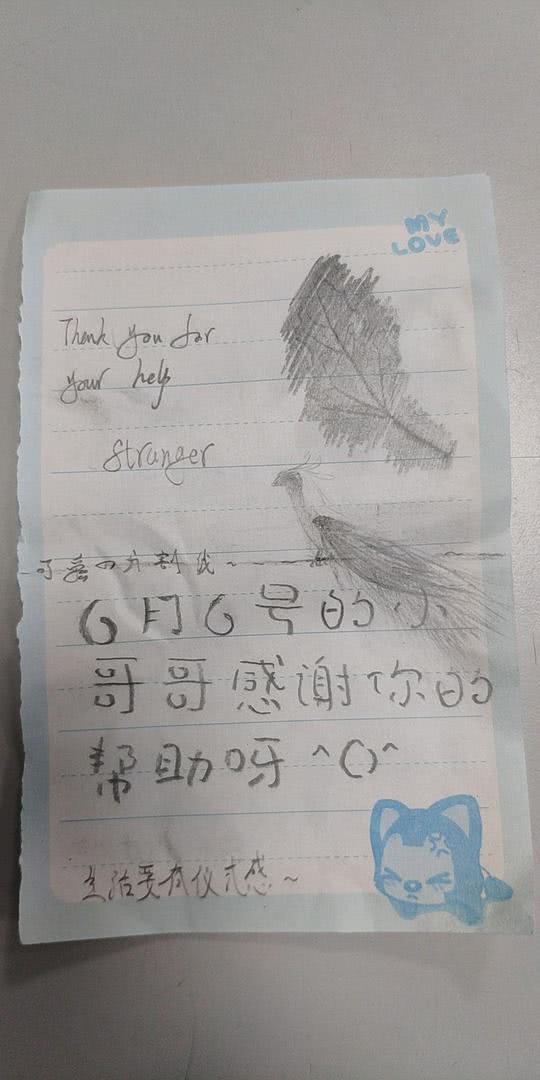 MY
LOVE
Thank you for
your help
Stranger
可爱的分割线~
6月6号的小
哥哥感谢你的
帮助呀^O^
生活要有仪式感~